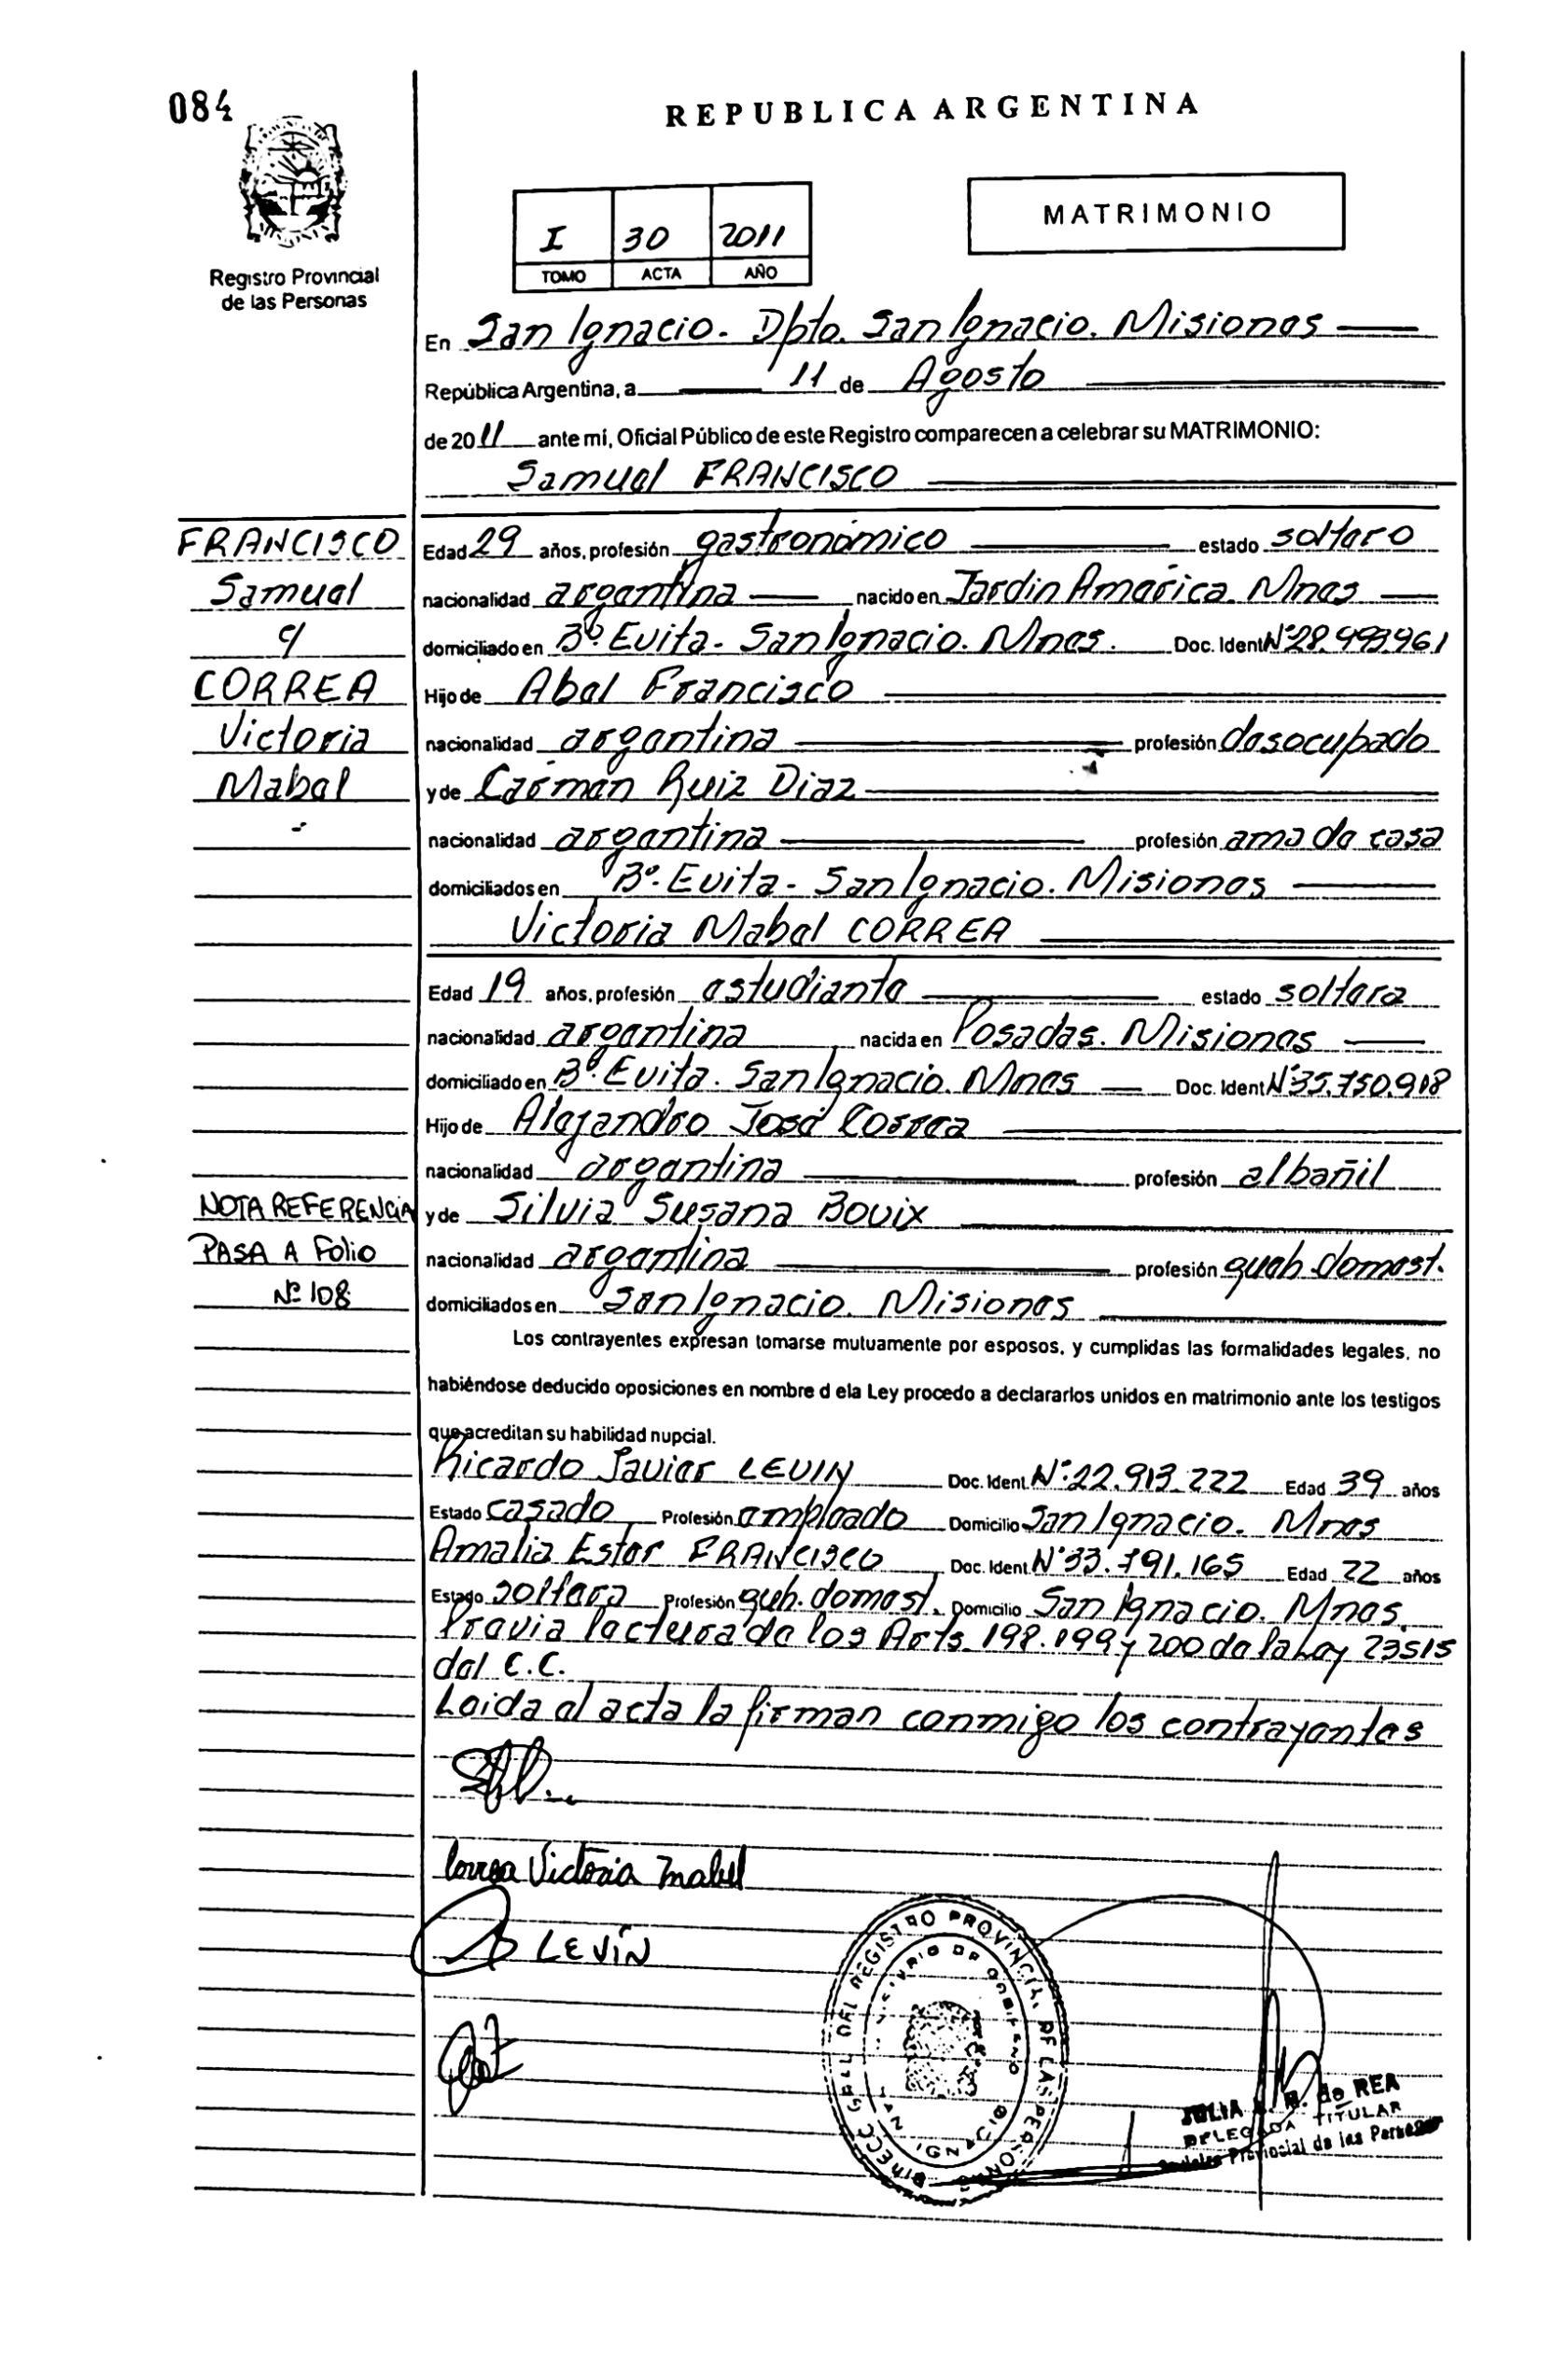 084
REPUBLICA ARGENTINA
Registro Provincial
de las Personas
I 30 2011
TOMO ACTA AÑO
MATRIMONIO
En San Ignacio. Dpto. San Ignacio. Misiones
República Argentina, a 11 de Agosto
de 2011 ante mí, Oficial Público de este Registro comparecen a celebrar su MATRIMONIO:
Samuel FRANCISCO
FRANCISCO
Samuel
c/
CORREA
Victoria
Mabel
Edad 29 años, profesión gastronómico estado soltero
nacionalidad argentina nacido en Jardin América. Mnes
domiciliado en Bº. Evita - San Ignacio. Mnes. Doc. Ident Nº 28.493.961
Hijo de Abel Francisco
nacionalidad argentina profesión desocupado
y de Carmen Ruiz Diaz
nacionalidad argentina profesión ama de casa
domiciliados en Bº. Evita - San Ignacio. Misiones
Victoria Mabel CORREA
Edad 19 años, profesión estudiante estado soltera
nacionalidad argentina nacida en Posadas. Misiones
domiciliado en Bº. Evita. San Ignacio. Mnes Doc. Ident Nº 35.750.918
Hijo de Alejandro José Correa
nacionalidad argentina profesión albañil
y de Silvia Susana Bovix
nacionalidad argentina profesión queh. domest.
domiciliados en San Ignacio. Misiones
NOTA REFERENCIA
PASA A Folio
Nº 108
Los contrayentes expresan tomarse mutuamente por esposos, y cumplidas las formalidades legales, no
habiéndose deducido oposiciones en nombre d ela Ley procedo a declararlos unidos en matrimonio ante los testigos
que acreditan su habilidad nupcial.
Ricardo Javier LEVIN Doc. Ident. Nº: 22.913.222 Edad 39 años
Estado casado Profesión empleado Domicilio San Ignacio. Mnes
Amalia Ester FRANCISCO Doc. Ident. Nº 33.791.165 Edad 22 años
Estado soltera Profesión queh. domest. Domicilio San Ignacio. Mnes.
Previa lectura de los Arts. 198. 199 y 200 de la Ley 23515
del C.C.
Leida el acta la firman conmigo los contrayentes
Correa Victoria Mabel
LEVÍN
DIRECC GRAL DEL REGISTRO PROVINCIAL DE LAS PERSONAS
DE GOBIERNO
SAN IGNACIO
JULIA de REA
DELEGADA TITULAR
Provincial de las Personas